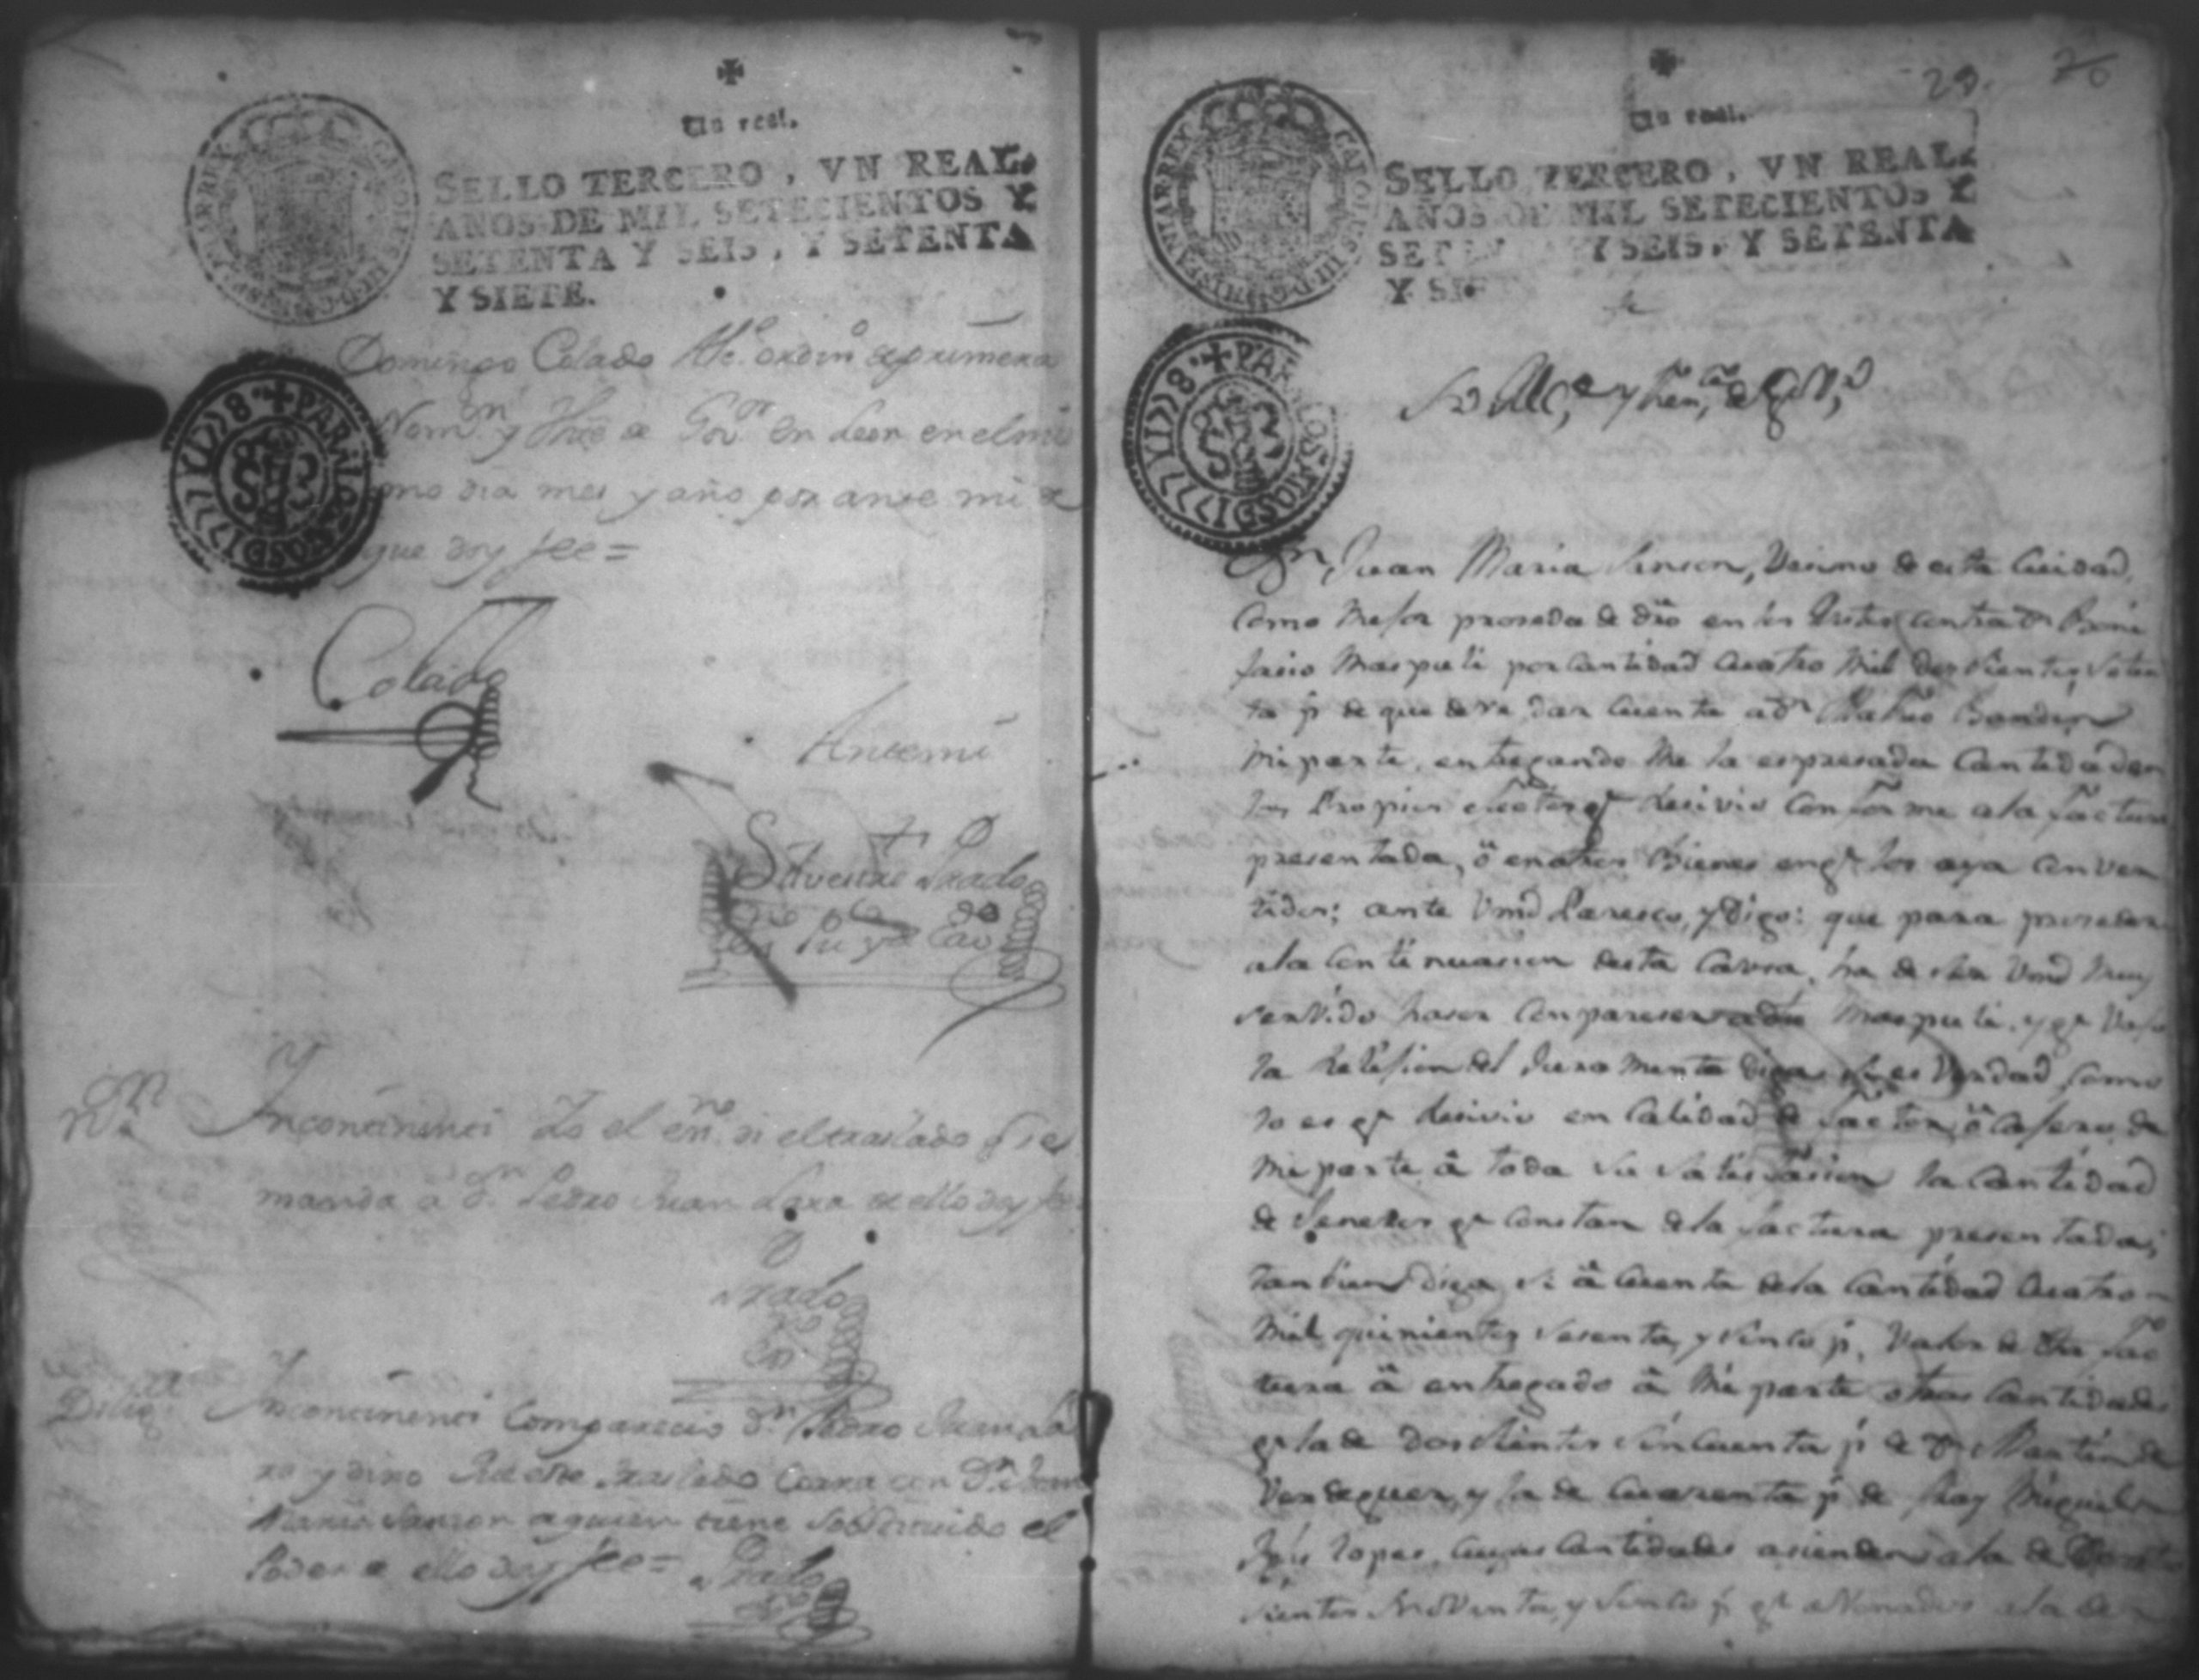 Un real.
SELLO TERCERO, VN REAL,
AÑOS DE MIL SETECIENTOS Y
SETENTA Y SEIS, Y SETENTA
Y SIETE.
CAROLUS III D G HISPANIAR REX
PARA LOS AÑOS DI 1777 I 78
Domingo Colado Alc.e ordin.o de primera
Nom.on y Thte de Gov.or en Leon en el mis
mo dia mes y año por ante mi de
que doy fee =
Colado
Antemi
Silvestre Prado
es.no pu.co y de Cav.do
Incontinenti Yo el esn.no di el traslado q se
manda á d.n Pedro Juan Lara de ello doy fee
Prado
esno
Dilig.a
Incontinenti Comparecio d.n Pedro Juan La
ra y dixo Que este traslado Corra con D.n Juan
Maria Sanson a quien tiene Sobstituido el
Poder de ello doy fee = Prado
29.
Un real.
SELLO TERCERO, VN REAL,
AÑOS DE MIL SETECIENTOS Y
SETENTA Y SEIS, Y SETENTA
Y SI
CAROLUS III D G HISPANIAR REX
PARA LOS AÑOS DI 1777 I 78
D.n Juan Maria Sanson, Vesino de esta Ciuidad,
como Mejor proseda de dro en los Autos contra d.n Boni
facio Maspuli por Cantidad Cuatro Mil dos sientos Seten
ta p.s de que deve dar Cuenta a d.n
Mi parte, entregando Me la espresada Cantidad en
los Propios efectos q.e Resivio Conforme ala factura
presentada, ó en otros Bienes en q.e los aya Conver
tidos; ante Vmd Paresco, y Digo: que para proseder
ala Continuasion desta Causa, ha de Vmd Muy
servido haser Comparecer a dho Maspuli, y q.e Vajo
la Relijion del Juramento Diga si es Verdad Como
lo es q.e Resivio en Calidad de factor, ó Cajero de
Mi parte á toda su Satisfasion la Cantidad
de Jeneros q.e Constan dela factura presentada;
tambien Diga si á Cuenta dela Cantidad Cuatro
Mil quinientos Sesenta, y Sinco p.s Valor de dha fac
tura á entregado á Mi parte otras Cantidades
q.e la de Dos sientos Sincuenta p.s de d.n Martin de
Verdeguer, y la de Cuarenta p.s de fray Miguel
Lopes, Cuyas Cantidades asienden ala de Dos
sientos Noventa, y Sinco p.s q.e abonados ala de